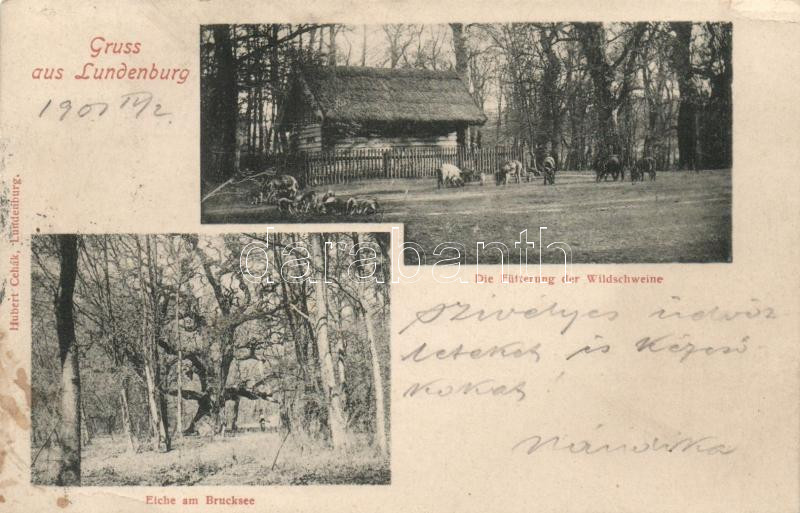 Gruss
aus Lundenburg
1901 IV/2.
Hubert Cehák, Lundenburg.
darabanth
Die Fütterung der Wildschweine
Szivélyes üdvöz
leteket és kézcsó
kokat!
Nándika
Eiche am Brucksee